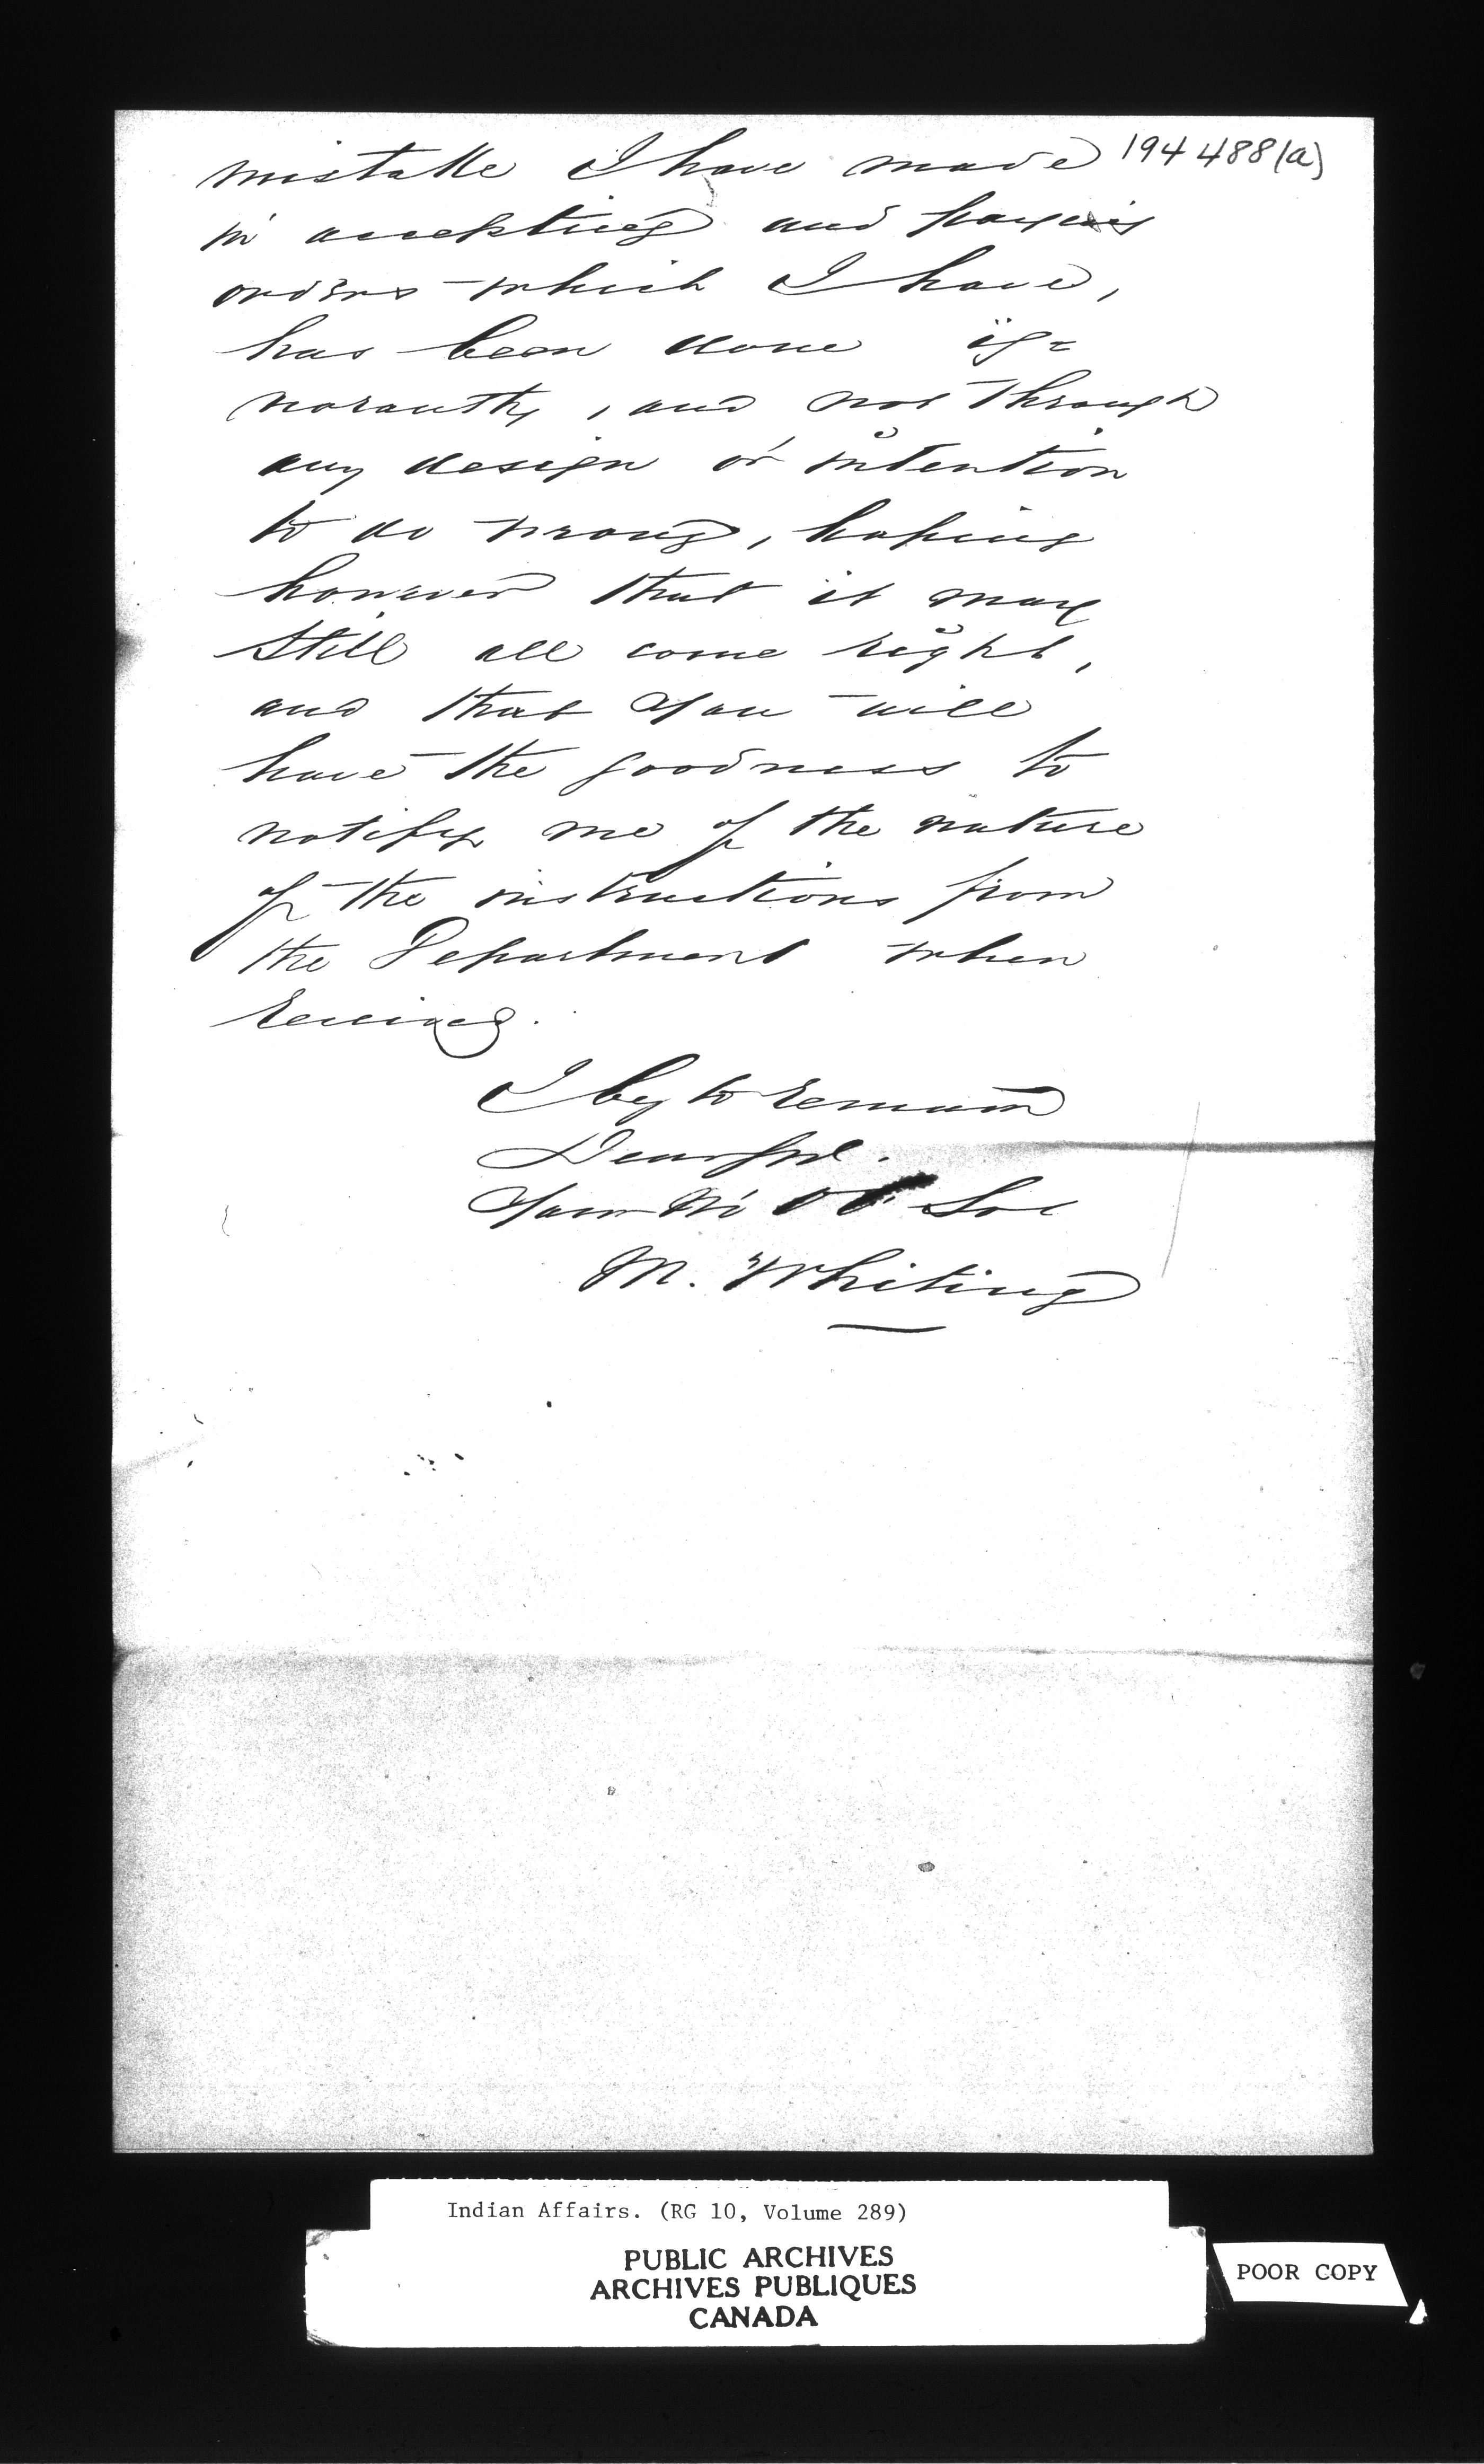 194488(a)
mistake I have made
in accepting and paying
orders which I have,
has been done ig=
norantly, and not through
any design or intention
to do wrong, hoping
however that it may
still all come right,
and that you will
have the goodness to
notify me of the nature
of the instructions from
the Department when
received.
I beg to remain
Dear Sir
Your Mo Ob Sr
M. Whiting
Indian Affairs. (RG 10, Volume 289)
PUBLIC ARCHIVES
ARCHIVES PUBLIQUES
CANADA
POOR COPY